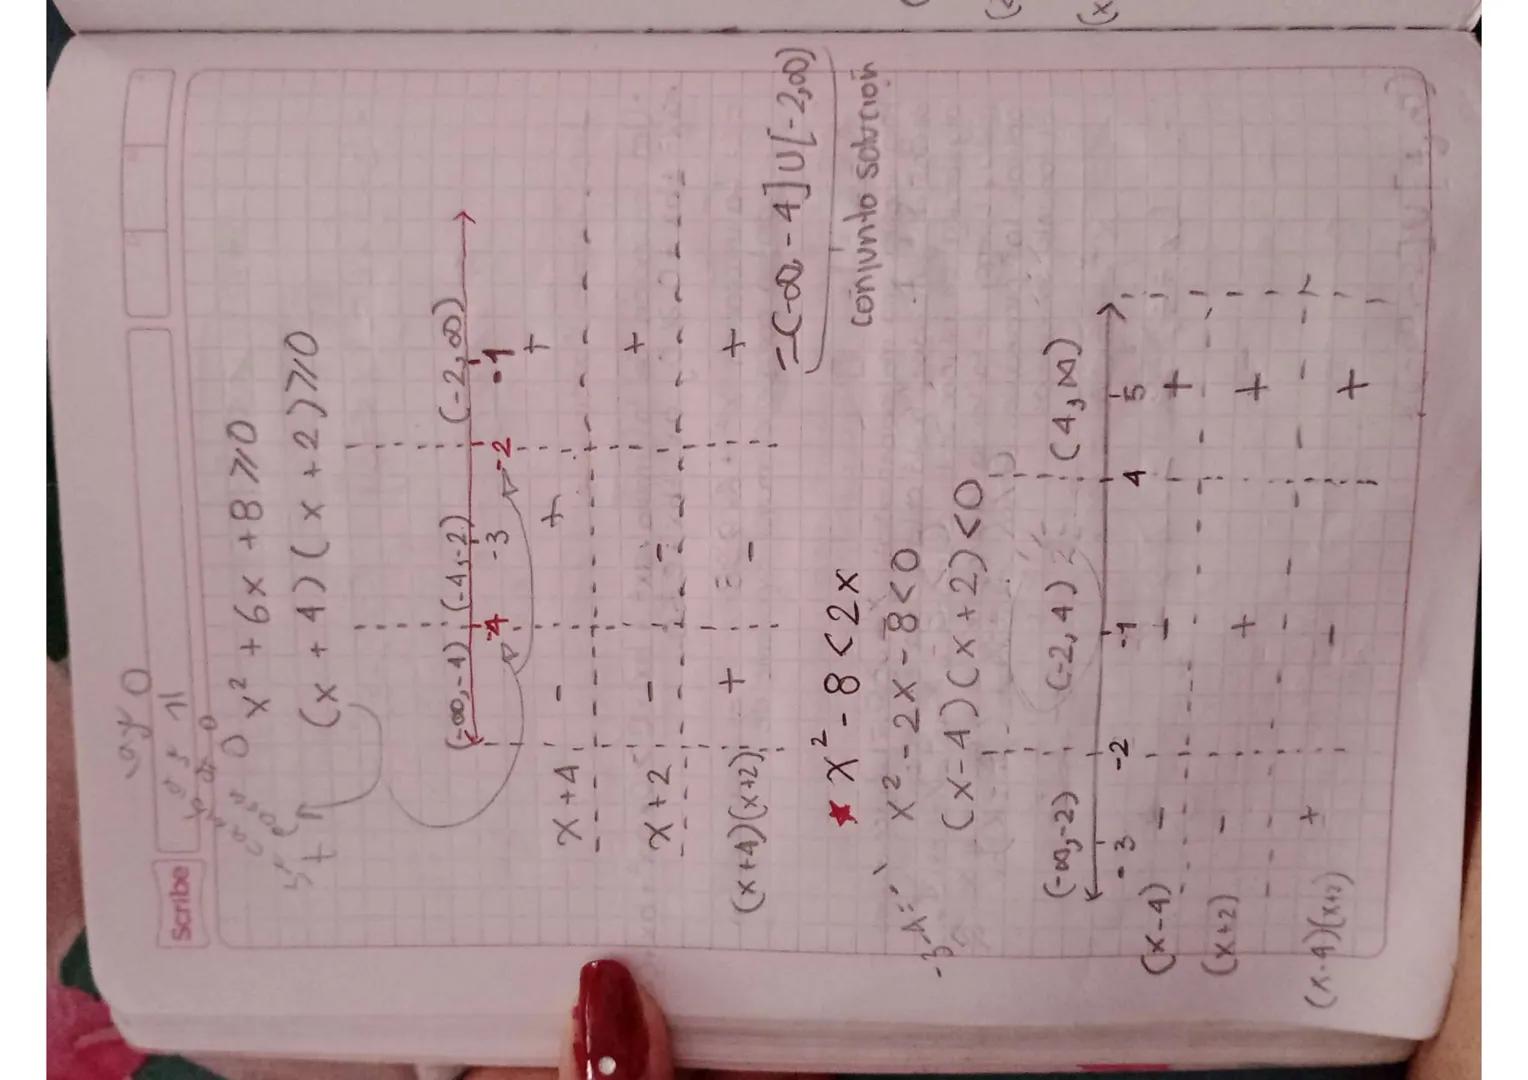 Scribe
x² + 6x + 8 ⩾ 0
(x + 4)(x + 2) ⩾ 0
(-∞, -4) (-4, -2) (-2, ∞)
-4 -3 -2 -1
x + 4 - + +
x + 2 - - +
(x+4)(x+2) + - +
= (-∞, -4] U [-2, ∞)
conjunto solución
★ x² - 8 < 2x
x² - 2x - 8 < 0
-3-4=-
(x-4)(x+2) < 0
(-∞, -2) (-2, 4) (4, ∞)
-3 -2 -1 4 5
(x-4) - - +
(x+2) - + +
(x-4)(x+2) + - +